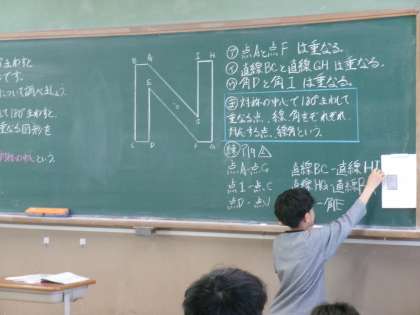 まわすと
です。
について調べましょう。
て180°まわすと、
重なる図形を
対称の中心という
B A I H
E
O
J
C D F G
㋐ 点Aと点Fは重なる。
㋑ 直線BCと直線GHは重なる。
㋒ 角Dと角Iは重なる。
対称の中心で180°まわして
重なる点、線、角をそれぞれ
対応する点、線、角という。
P19
点A-点G 直線BC-直線HI
点I-点C 直線HG-直線
点D-点J 角E